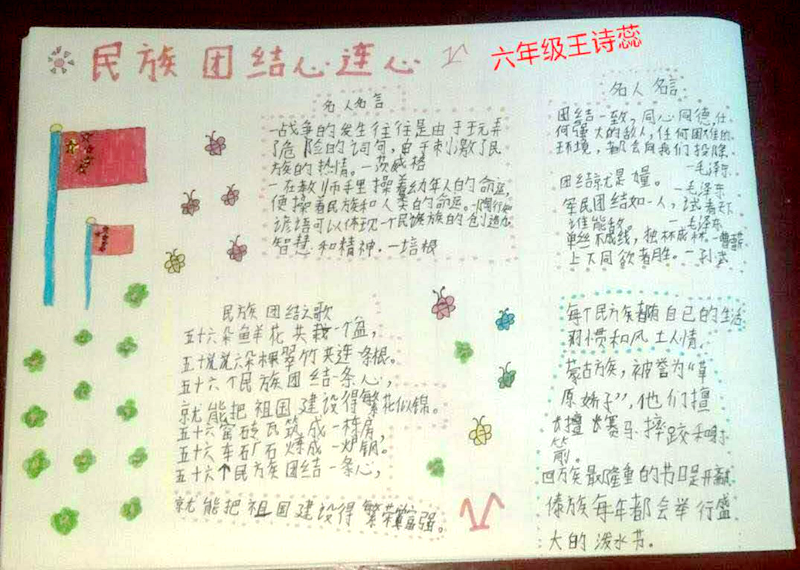 民族团结心连心
六年级王诗蕊
名人名言
战争的发生往往是由于玩弄
了危险的词句,由于刺激了民
族的热情。—茨威格
一在教师手里操着幼年人的命运,
便操着民族和人类的命运。—陶行知
谚语可以体现一个民族的创造力
智慧和精神。—培根
名人名言
团结一致,同心同德,任
何强大的敌人,任何困难的
环境,都会向我们投降
—毛泽东
团结就是力量。
—毛泽东
军民团结如一人,试看天下
谁能敌。—毛泽东
单丝不成线,独林不成林。
上下同欲者胜。—孙武
民族团结之歌
五十六朵鲜花共栽一个盆,
五十六棵翠竹共连一条根。
五十六个民族团结一条心,
就能把祖国建设得繁花似锦。
五十六窑砖瓦筑成一栋房,
五十六车矿石炼成一炉钢。
五十六个民族团结一条心,
就能把祖国建设得繁荣富强。
每个民族都有自己的生活
习惯和风土人情。
蒙古族,被誉为“草
原娇子”,他们擅
长赛马摔跤和射
箭。
回族最隆重的节日是开斋
傣族每年都会举行盛
大的泼水节。